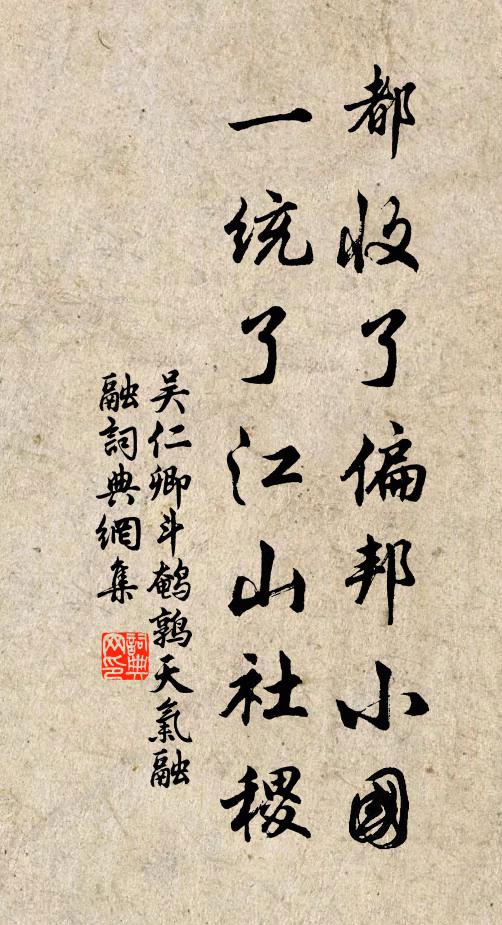 都收了偏邦小國
一统了江山社稷
吴仁卿斗鹌鹑天氣融
融詞典網集
詞典网印